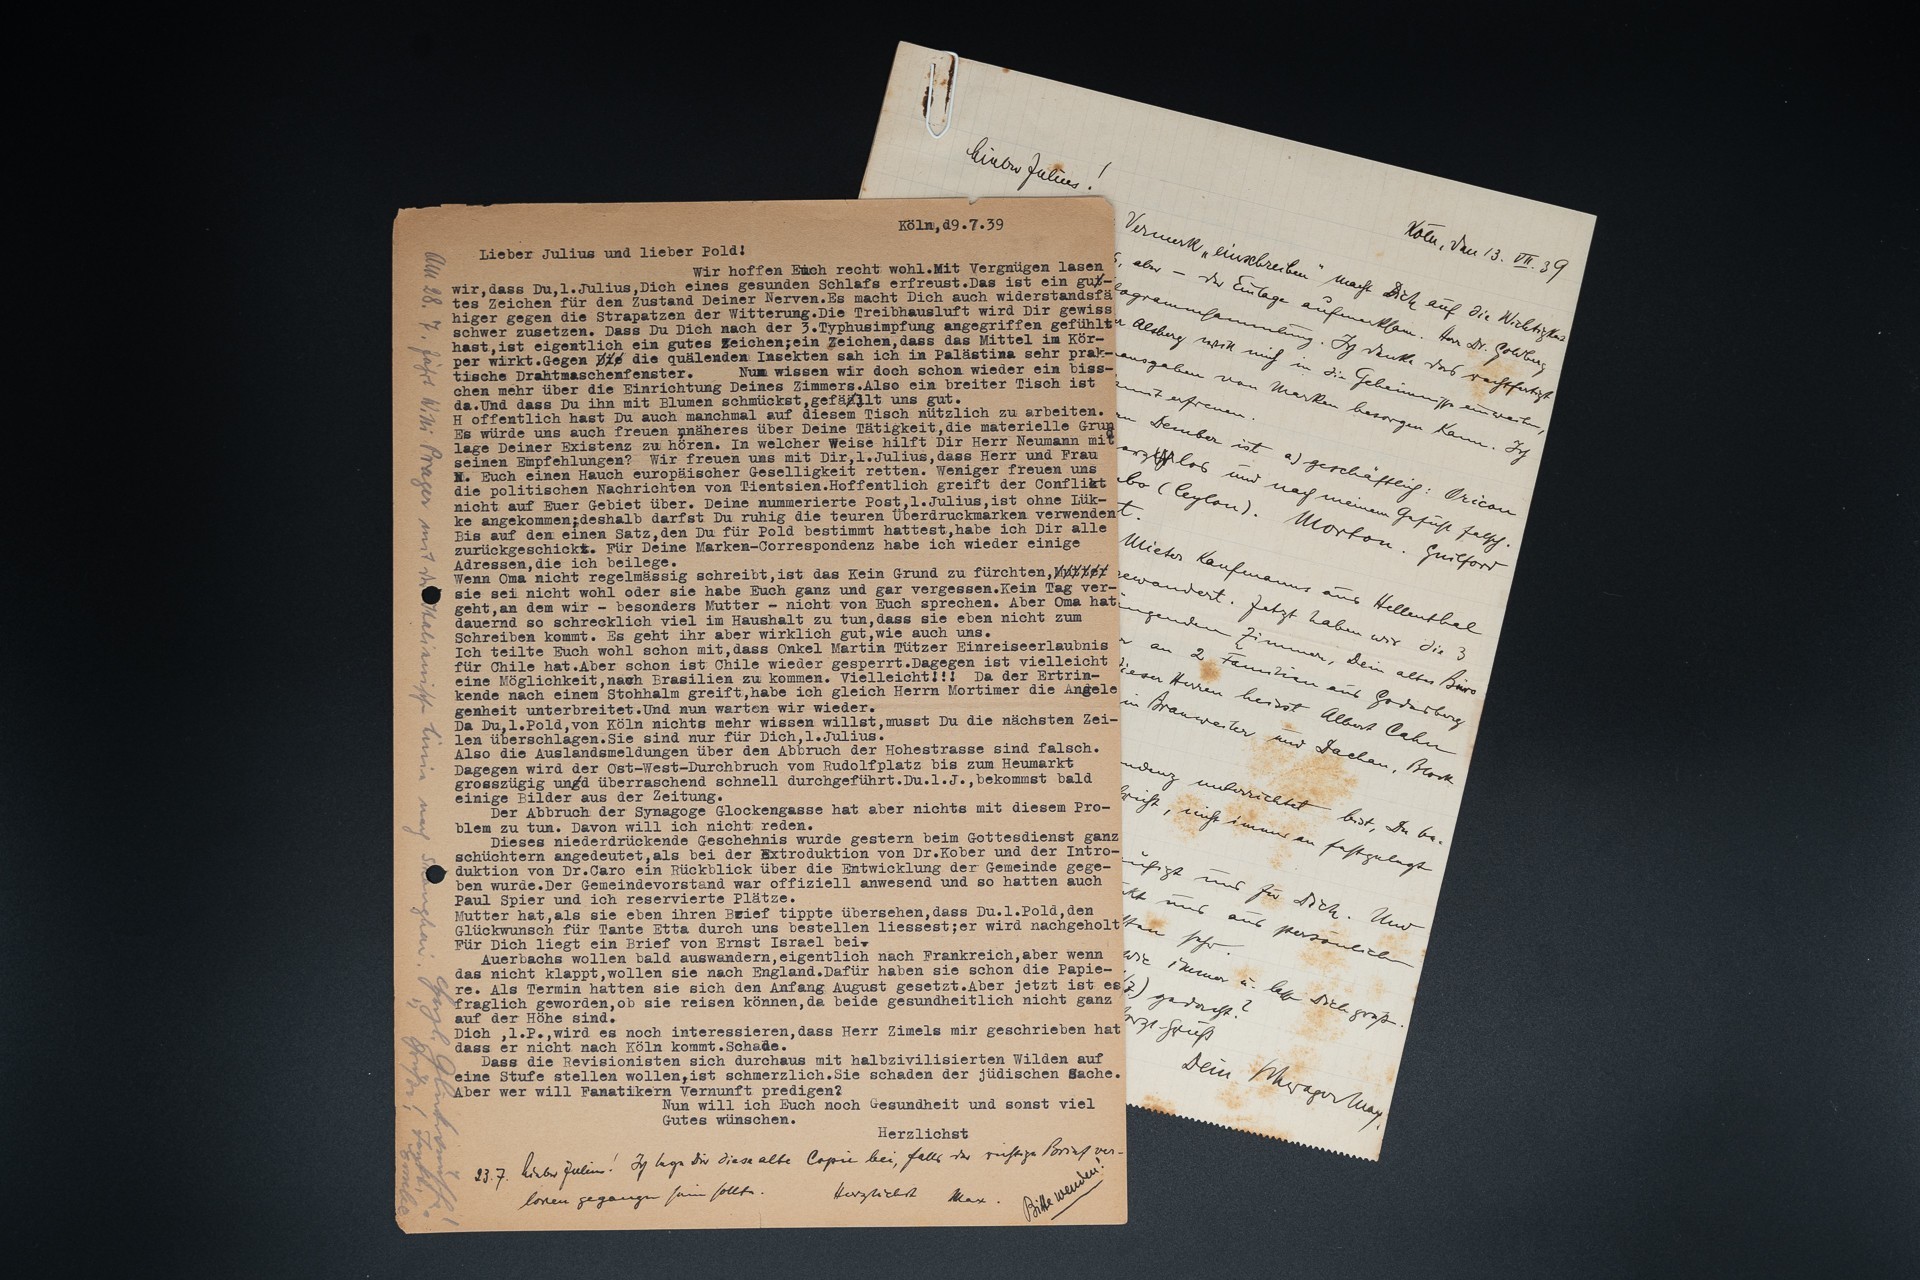 Köln,d9.7.39
Lieber Julius und lieber Pold!
Wir hoffen Euch recht wohl.Mit Vergnügen lasen
wir,dass Du,l.Julius,Dich eines gesunden Schlafs erfreust.Das ist ein gu-
tes Zeichen für den Zustand Deiner Nerven.Es macht Dich auch widerstandsfä
higer gegen die Strapatzen der Witterung.Die Treibhausluft wird Dir gewiss
schwer zusetzen. Dass Du Dich nach der 3.Typhusimpfung angegriffen gefühlt
hast,ist eigentlich ein gutes Zeichen;ein Zeichen,dass das Mittel im Kör-
per wirkt.Gegen die quälenden Insekten sah ich in Palästina sehr prak-
tische Drahtmaschenfenster. Nun wissen wir doch schon wieder ein biss-
chen mehr über die Einrichtung Deines Zimmers.Also ein breiter Tisch ist
da.Und dass Du ihn mit Blumen schmückst,gefällt uns gut.
H offentlich hast Du auch manchmal auf diesem Tisch nützlich zu arbeiten.
Es würde uns auch freuen ,näheres über Deine Tätigkeit,die materielle Grund
lage Deiner Existenz zu hören. In welcher Weise hilft Dir Herr Neumann mit
seinen Empfehlungen? Wir freuen uns mit Dir,l.Julius,dass Herr und Frau
N. Euch einen Hauch europäischer Geselligkeit retten. Weniger freuen uns
die politischen Nachrichten von Tientsien.Hoffentlich greift der Conflikt
nicht auf Euer Gebiet über. Deine nummerierte Post,l.Julius,ist ohne Lük-
ke angekommen;deshalb darfst Du ruhig die teuren Überdruckmarken verwenden
Bis auf den einen Satz,den Du für Pold bestimmt hattest,habe ich Dir alle
zurückgeschickt. Für Deine Marken-Correspondenz habe ich wieder einige
Adressen,die ich beilege.
Wenn Oma nicht regelmässig schreibt,ist das Kein Grund zu fürchten,
sie sei nicht wohl oder sie habe Euch ganz und gar vergessen.Kein Tag ver-
geht,an dem wir - besonders Mutter - nicht von Euch sprechen. Aber Oma hat
dauernd so schrecklich viel im Haushalt zu tun,dass sie eben nicht zum
Schreiben kommt. Es geht ihr aber wirklich gut,wie auch uns.
Ich teilte Euch wohl schon mit,dass Onkel Martin Tützer Einreiseerlaubnis
für Chile hat.Aber schon ist Chile wieder gesperrt.Dagegen ist vielleicht
eine Möglichkeit,nach Brasilien zu kommen. Vielleicht!!! Da der Ertrin-
kende nach einem Stohhalm greift,habe ich gleich Herrn Mortimer die Angele
genheit unterbreitet.Und nun warten wir wieder.
Da Du,l.Pold,von Köln nichts mehr wissen willst,musst Du die nächsten Zei-
len überschlagen.Sie sind nur für Dich,l.Julius.
Also die Auslandsmeldungen über den Abbruch der Hohestrasse sind falsch.
Dagegen wird der Ost-West-Durchbruch vom Rudolfplatz bis zum Heumarkt
grosszügig und überraschend schnell durchgeführt.Du.l.J.,bekommst bald
einige Bilder aus der Zeitung.
Der Abbruch der Synagoge Glockengasse hat aber nichts mit diesem Pro-
blem zu tun. Davon will ich nicht reden.
Dieses niederdrückende Geschehnis wurde gestern beim Gottesdienst ganz
schüchtern angedeutet,als bei der Extroduktion von Dr.Kober und der Intro-
duktion von Dr.Caro ein Rückblick über die Entwicklung der Gemeinde gege-
ben wurde.Der Gemeindevorstand war offiziell anwesend und so hatten auch
Paul Spier und ich reservierte Plätze.
Mutter hat,als sie eben ihren Brief tippte übersehen,dass Du.l.Pold,den
Glückwunsch für Tante Etta durch uns bestellen liessest;er wird nachgeholt
Für Dich liegt ein Brief von Ernst Israel bei.
Auerbachs wollen bald auswandern,eigentlich nach Frankreich,aber wenn
das nicht klappt,wollen sie nach England.Dafür haben sie schon die Papie-
re. Als Termin hatten sie sich den Anfang August gesetzt.Aber jetzt ist es
fraglich geworden,ob sie reisen können,da beide gesundheitlich nicht ganz
auf der Höhe sind.
Dich ,l.P.,wird es noch interessieren,dass Herr Zimels mir geschrieben hat
dass er nicht nach Köln kommt.Schade.
Dass die Revisionisten sich durchaus mit halbzivilisierten Wilden auf
eine Stufe stellen wollen,ist schmerzlich.Sie schaden der jüdischen Sache.
Aber wer will Fanatikern Vernunft predigen?
Nun will ich Euch noch Gesundheit und sonst viel
Gutes wünschen.
Herzlichst
23.7. Lieber Julius! Ich lege Dir diese alte Copie bei, falls der richtige Brief ver-
loren gegangen sein sollte. Herzlichst Max.
Bitte wenden!
Am 28. 7. fährt Willi Prager mit der Italienischen Linie nach Shanghai.
Lieber Julius!
Köln, den 13. VII. 39
Vermerk „einschreiben" macht Dich auf die Wichtigkeit
aber – der Einlage aufmerksam. Herr Dr. Goldberg
Ich denke das rechtfertigt
Alsberg will mich in die Geheimnisse einweihen,
ausgaben von Marken besorgen kann. Ich
erfreuen.
Dember ist a) geschäftlich: Orion
los und nach meinem Gefühl falsch.
(Ceylon). Morton. Guilford
Mieter Kaufmanns aus Hellenthal
Jetzt haben wir die 3
Zimmer, Dein altes Büro
an 2 Familien aus Godesberg
dieser Herren heisst Albert Cahn
in Brauweiler und Dachau, Block
unterrichtet bist, Du be-
nicht immer an festgelegt
uns für Dich. Und
uns aus persönlichen
sehr.
wie immer u. lass Dich grüß.
gedacht?
Dein Schwager Max.